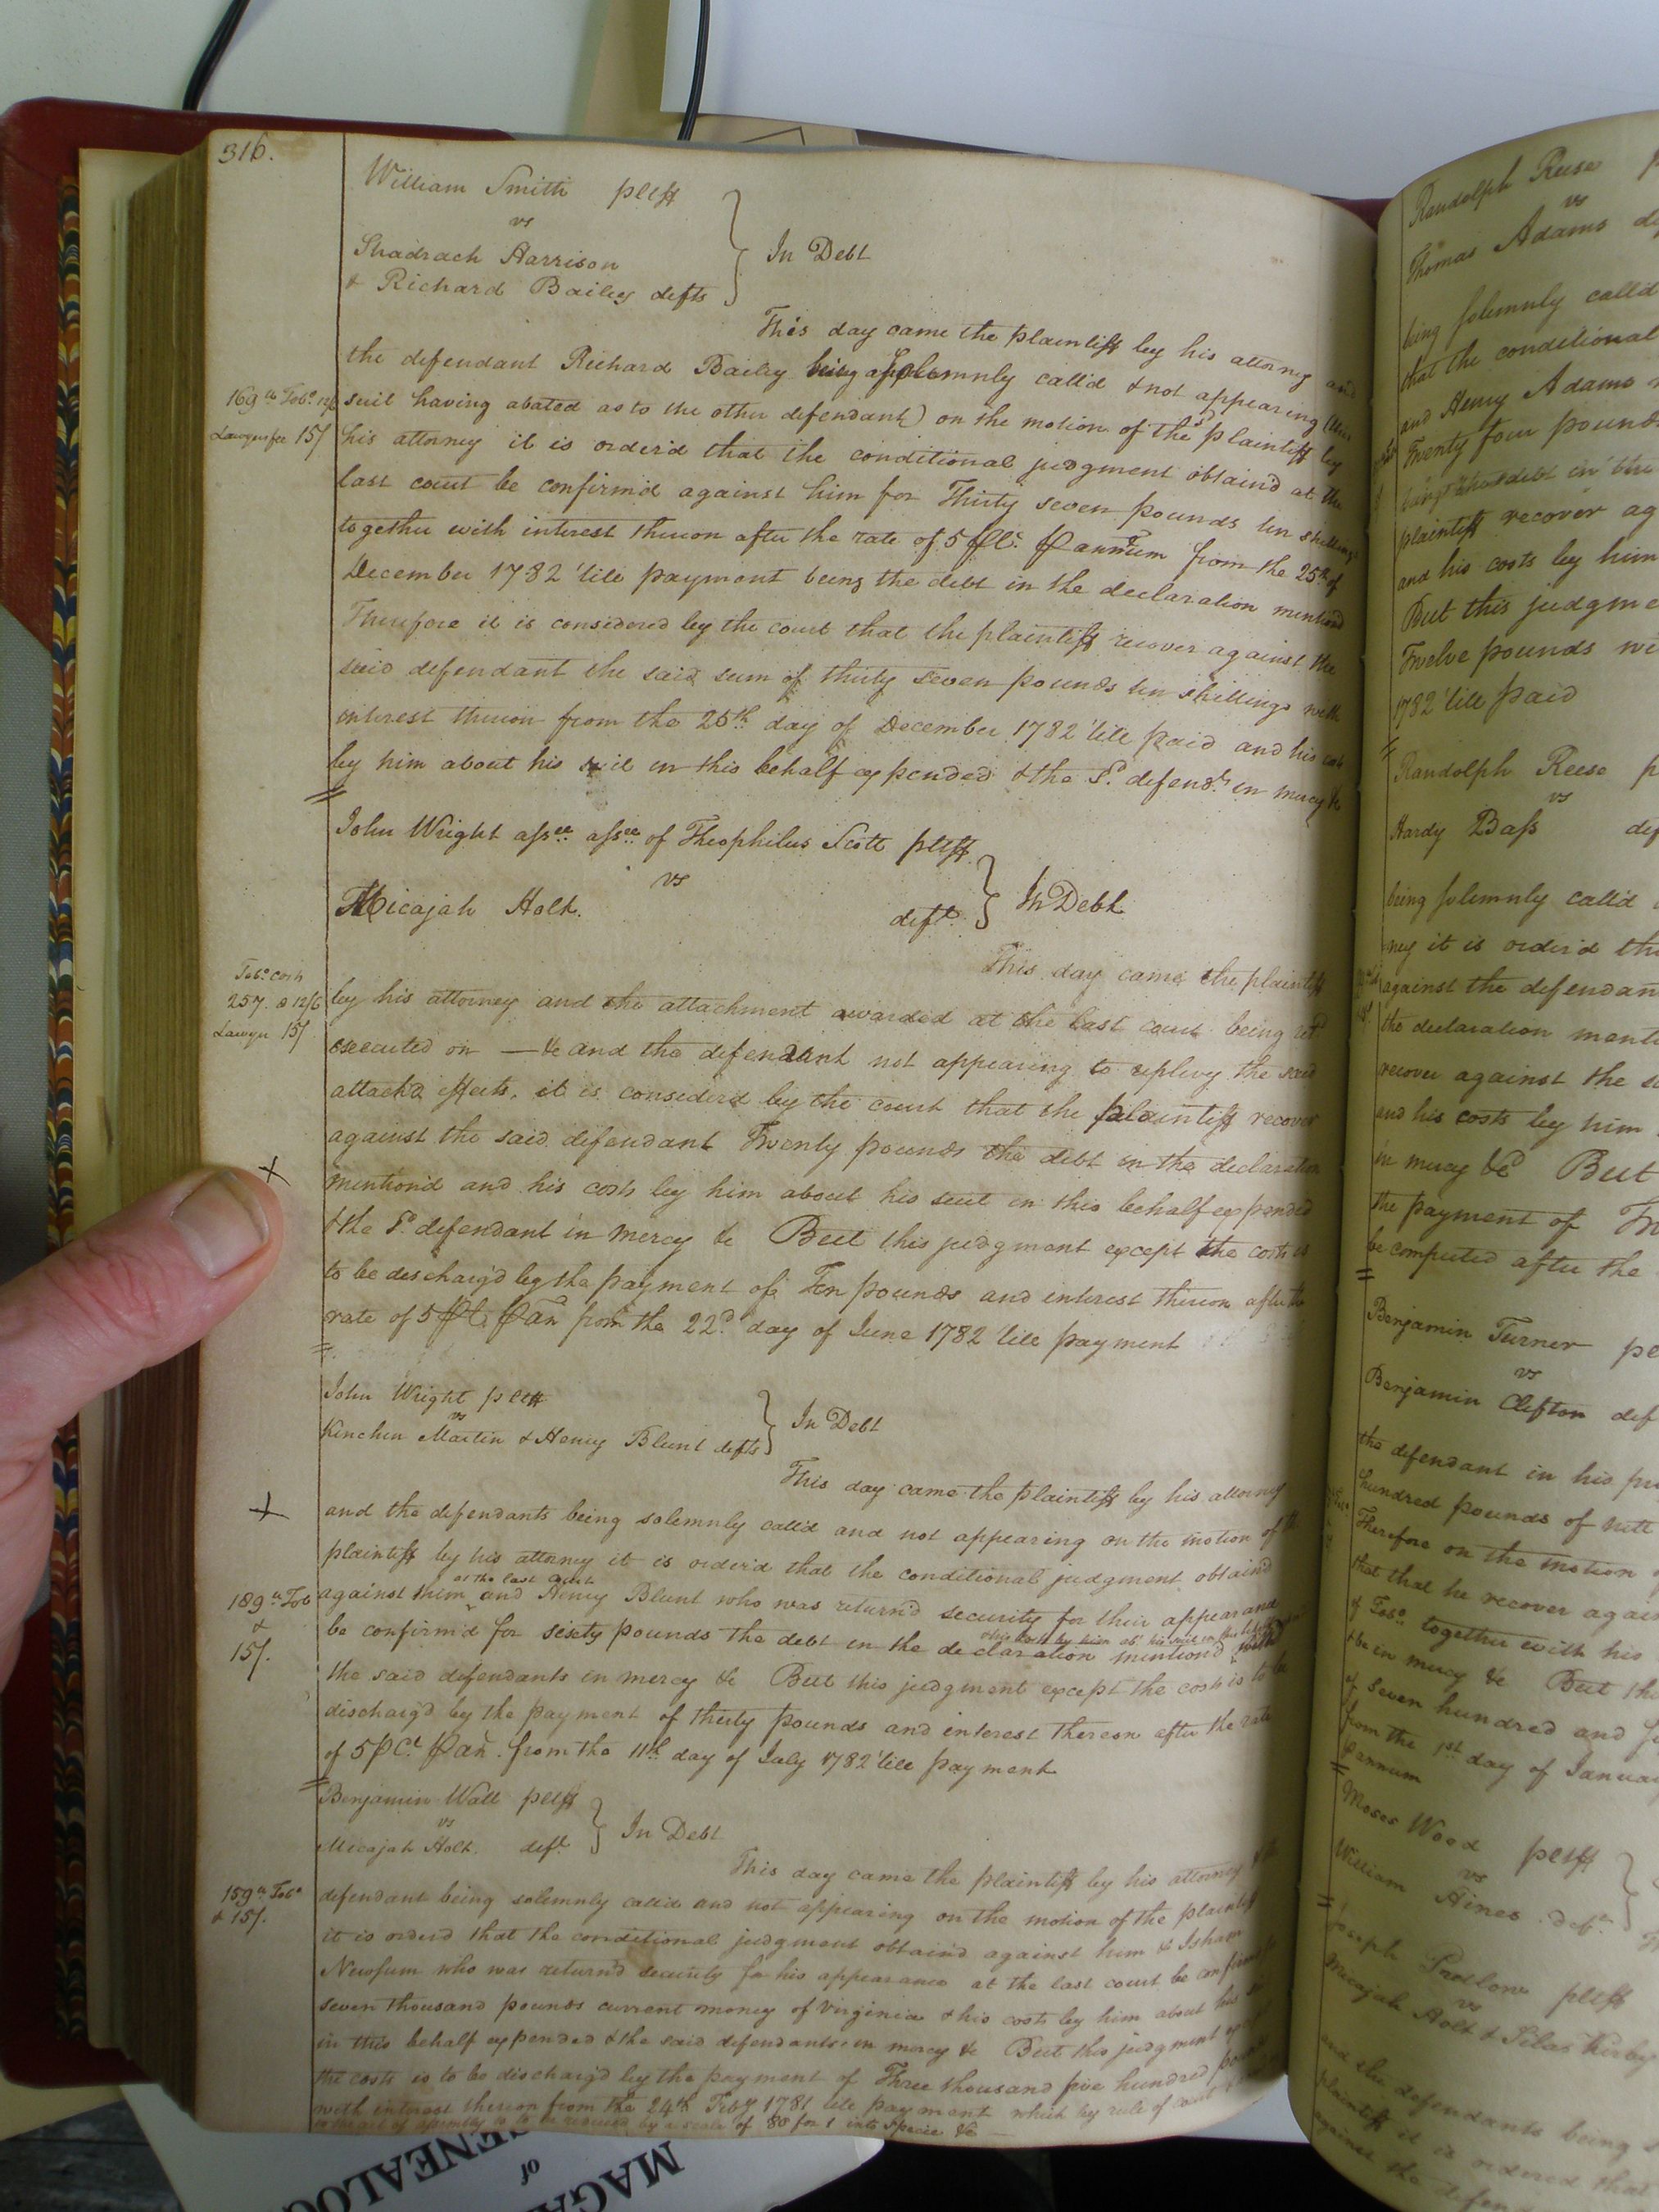 316.
William Smith pltff
vs
Shadrach Harrison
& Richard Bailey defts
In Debt
This day came the plaintiff by his attorney and
the defendant Richard Bailey being solemnly call'd & not appearing (this
169 lb Tobo. 12/6
suit having abated as to the other defendant) on the motion of the sd plaintiff by
Lawyers fee 15/
his attorney it is order'd that the conditional judgment obtain'd at the
last court be confirm'd against him for Thirty seven pounds ten shillings
together with interest thereon after the rate of 5 P Ct. P annum from the 25th of
December 1782 'till payment being the debt in the declaration mention'd
Therefore it is considered by the court that the plaintiff recover against the
said defendant the said sum of thirty seven pounds ten shillings with
interest thereon from the 25th day of December 1782 'till paid and his costs
by him about his suit in this behalf expended & the sd. defendt. in mercy &c
John Wright assee. assee. of Theophilus Scott pltff
vs
Micajah Holt. deft.
In Debt
This day came the plaintiff
Tobo. costs
257. @ 12/6
by his attorney and the attachment awarded at the last court being retd
Lawyer 15/
executed on — &c and the defendant not appearing to replevy the said
attach'd effects, it is consider'd by the court that the plaintiff recover
against the said defendant Twenty pounds the debt in the declaration
mention'd and his costs by him about his suit in this behalf expended
& the sd. defendant in mercy &c But this judgment except the costs is
to be discharg'd by the payment of Ten pounds and interest thereon after the
rate of 5 P Ct. P an from the 22d. day of June 1782 'till payment
John Wright pltff
vs
Kinchen Martin & Henry Blunt defts
In Debt
This day came the plaintiff by his attorney
and the defendants being solemnly call'd and not appearing on the motion of the
plaintiff by his attorney it is order'd that the conditional judgment obtain'd
at the last Court
against him and Henry Blunt who was return'd security for their appearance
189 lb Tob
&
15/.
& his costs by him abt his suit in this
be confirm'd for sixty pounds the debt in the declaration mention'd with
the said defendants in mercy &c But this judgment except the costs is to be
discharg'd by the payment of thirty pounds and interest thereon after the rate
of 5 P Ct P an. from the 11th day of July 1782 'till payment
Benjamin Wall pltff
vs
Micajah Holt. deft
In Debt
This day came the plaintiff by his attorney & the
159 lb Tobo
& 15/.
defendant being solemnly call'd and not appearing on the motion of the plaintiff
it is orderd that the conditional judgment obtain'd against him & Isham
Newsum who was return'd security for his appearance at the last court be confirm'd for
seven thousand pounds current money of Virginia & his costs by him about his
in this behalf expended & the said defendants in mercy &c But this judgment except
the costs is to be discharg'd by the payment of Three thousand five hundred pounds
with interest thereon from the 24th Feby 1781 till payment which by rule of court
of assembly is to be reduced by a scale of 80 for 1 into specie &c
Randolph Reese
vs
Thomas Adams
being solemnly call'd
that the conditional
and Henry Adams
Twenty four pounds
being the debt in the
plaintiff recover ag
and his costs by him
But this judgme
Twelve pounds wi
1782 'till paid
Randolph Reese p
vs
Hardy Bass def
being solemnly call'd
ney it is order'd tha
against the defendan
the declaration menti
recover against the s
and his costs by him
in mercy &c But
the payment of Tw
be computed after the
Benjamin Turner pl
vs
Benjamin Clifton def
the defendant in his pr
hundred pounds of nett
Therefore on the motion
that that he recover again
of Tobo. together with his
& be in mercy &c But th
of seven hundred and f
from the 1st day of Januar
P annum
Moses Wood pltff
vs
William Hines deft
Joseph Pretlow pltff
vs
Micajah Holt & Silas Kirby
and the defendants being s
plaintiff it is ordered that
against the defen
MAGA
of
GENEALO